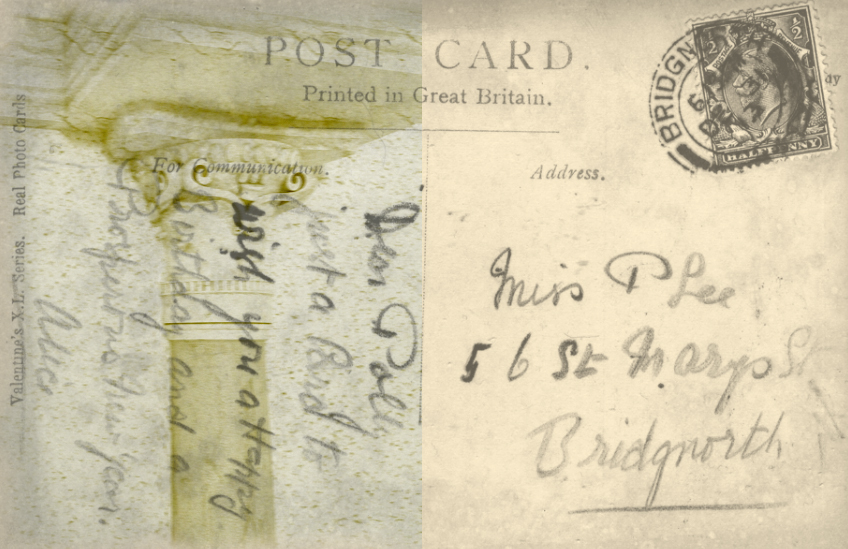 POST CARD.
Printed in Great Britain.
For Communication.
Address.
Valentine's X.L. Series. Real Photo Cards
BRIDGN
HALFPENNY
Dear Polly
just a Card to
wish you a Happy
Birthday and a
Prosperous New year.
Miss P Lee
56 St Marys St
Bridgnorth